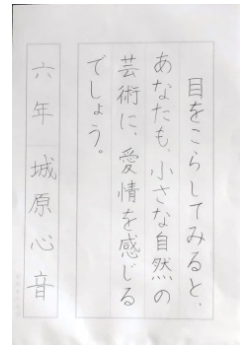 目をこらしてみると、
あなたも、小さな自然の
芸術に、愛情を感じる
でしょう。
六年 城原心音